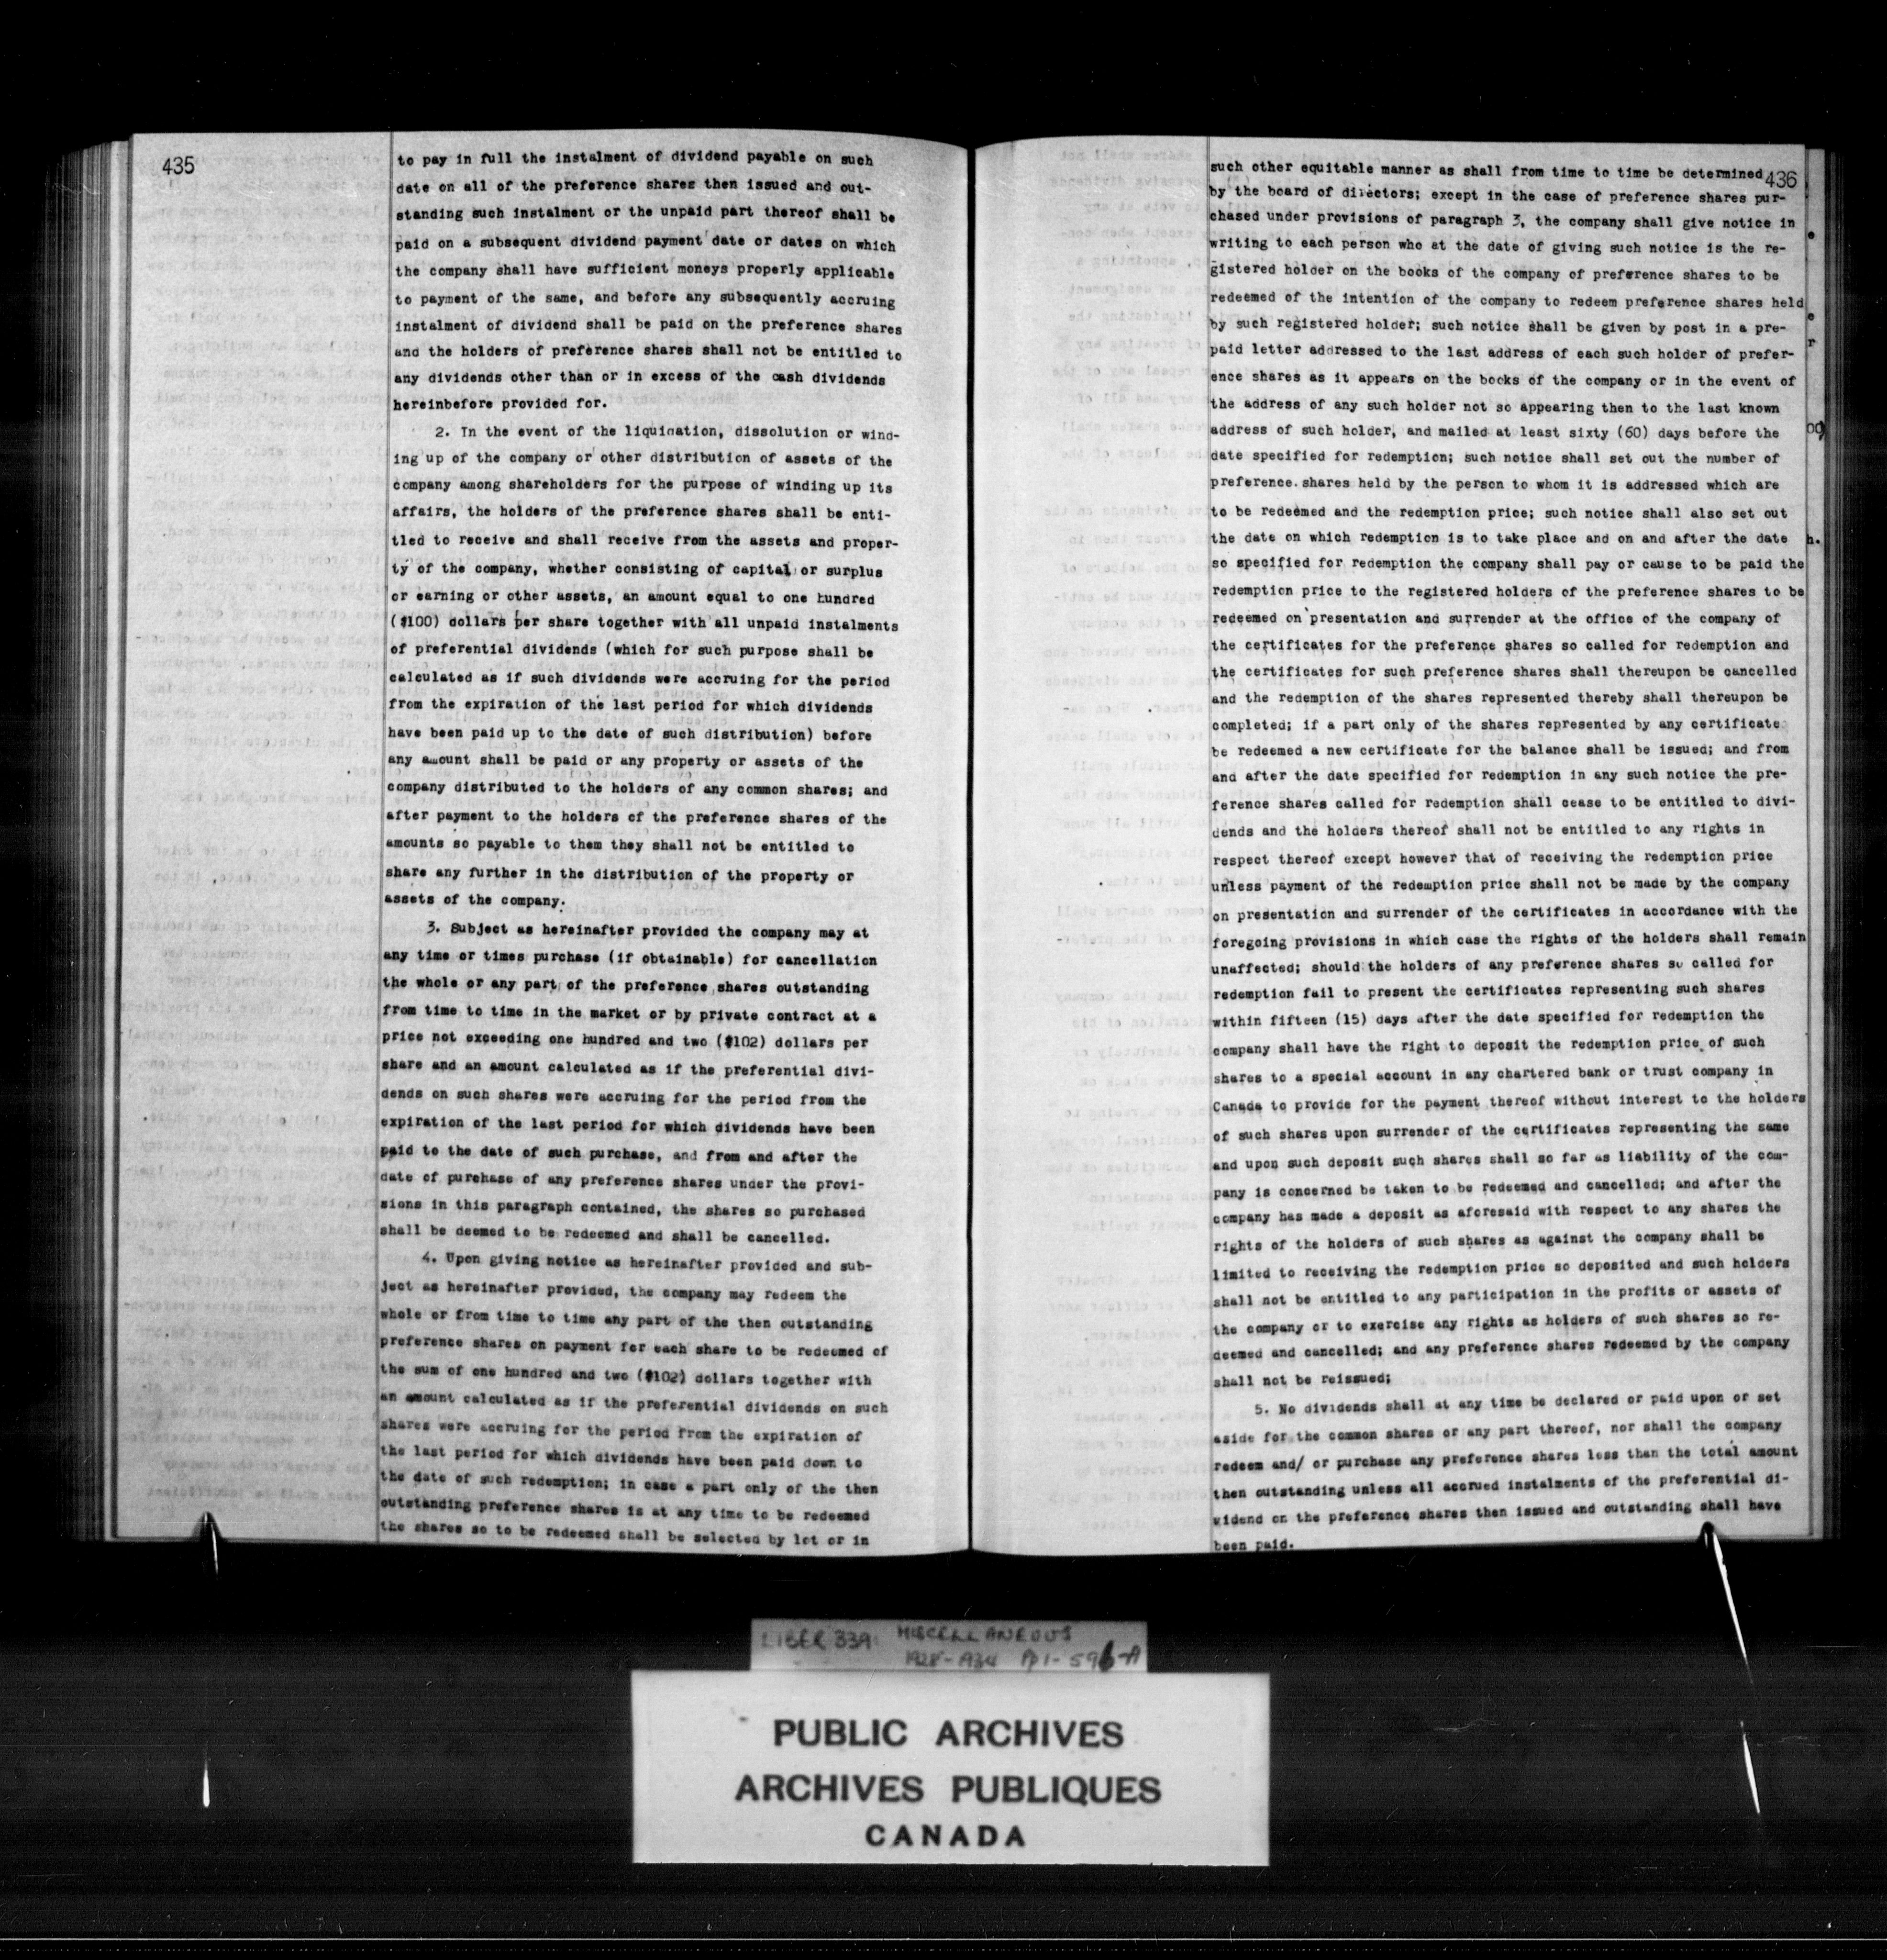 435
to pay in full the instalment of dividend payable on such
date on all of the preference shares then issued and out-
standing such instalment or the unpaid part thereof shall be
paid on a subsequent dividend payment date or dates on which
the company shall have sufficient moneys properly applicable
to payment of the same, and before any subsequently accruing
instalment of dividend shall be paid on the preference shares
and the holders of preference shares shall not be entitled to
any dividends other than or in excess of the cash dividends
hereinbefore provided for.
2. In the event of the liquidation, dissolution or wind-
ing up of the company or other distribution of assets of the
company among shareholders for the purpose of winding up its
affairs, the holders of the preference shares shall be enti-
tled to receive and shall receive from the assets and proper-
ty of the company, whether consisting of capital or surplus
or earning or other assets, an amount equal to one hundred
($100) dollars per share together with all unpaid instalments
of preferential dividends (which for such purpose shall be
calculated as if such dividends were accruing for the period
from the expiration of the last period for which dividends
have been paid up to the date of such distribution) before
any amount shall be paid or any property or assets of the
company distributed to the holders of any common shares; and
after payment to the holders of the preference shares of the
amounts so payable to them they shall not be entitled to
share any further in the distribution of the property or
assets of the company.
3. Subject as hereinafter provided the company may at
any time or times purchase (if obtainable) for cancellation
the whole or any part of the preference shares outstanding
from time to time in the market or by private contract at a
price not exceeding one hundred and two ($102) dollars per
share and an amount calculated as if the preferential divi-
dends on such shares were accruing for the period from the
expiration of the last period for which dividends have been
paid to the date of such purchase, and from and after the
date of purchase of any preference shares under the provi-
sions in this paragraph contained, the shares so purchased
shall be deemed to be redeemed and shall be cancelled.
4. Upon giving notice as hereinafter provided and sub-
ject as hereinafter provided, the company may redeem the
whole or from time to time any part of the then outstanding
preference shares on payment for each share to be redeemed of
the sum of one hundred and two ($102) dollars together with
an amount calculated as if the preferential dividends on such
shares were accruing for the period from the expiration of
the last period for which dividends have been paid down to
the date of such redemption; in case a part only of the then
outstanding preference shares is at any time to be redeemed
the shares so to be redeemed shall be selected by lot or in
436
such other equitable manner as shall from time to time be determined
by the board of directors; except in the case of preference shares pur-
chased under provisions of paragraph 3, the company shall give notice in
writing to each person who at the date of giving such notice is the re-
gistered holder on the books of the company of preference shares to be
redeemed of the intention of the company to redeem preference shares held
by such registered holder; such notice shall be given by post in a pre-
paid letter addressed to the last address of each such holder of prefer-
ence shares as it appears on the books of the company or in the event of
the address of any such holder not so appearing then to the last known
address of such holder, and mailed at least sixty (60) days before the
date specified for redemption; such notice shall set out the number of
preference shares held by the person to whom it is addressed which are
to be redeemed and the redemption price; such notice shall also set out
the date on which redemption is to take place and on and after the date
so specified for redemption the company shall pay or cause to be paid the
redemption price to the registered holders of the preference shares to be
redeemed on presentation and surrender at the office of the company of
the certificates for the preference shares so called for redemption and
the certificates for such preference shares shall thereupon be cancelled
and the redemption of the shares represented thereby shall thereupon be
completed; if a part only of the shares represented by any certificate
be redeemed a new certificate for the balance shall be issued; and from
and after the date specified for redemption in any such notice the pre-
ference shares called for redemption shall cease to be entitled to divi-
dends and the holders thereof shall not be entitled to any rights in
respect thereof except however that of receiving the redemption price
unless payment of the redemption price shall not be made by the company
on presentation and surrender of the certificates in accordance with the
foregoing provisions in which case the rights of the holders shall remain
unaffected; should the holders of any preference shares so called for
redemption fail to present the certificates representing such shares
within fifteen (15) days after the date specified for redemption the
company shall have the right to deposit the redemption price of such
shares to a special account in any chartered bank or trust company in
Canada to provide for the payment thereof without interest to the holders
of such shares upon surrender of the certificates representing the same
and upon such deposit such shares shall so far as liability of the com-
pany is concerned be taken to be redeemed and cancelled; and after the
company has made a deposit as aforesaid with respect to any shares the
rights of the holders of such shares as against the company shall be
limited to receiving the redemption price so deposited and such holders
shall not be entitled to any participation in the profits or assets of
the company or to exercise any rights as holders of such shares so re-
deemed and cancelled; and any preference shares redeemed by the company
shall not be reissued;
5. No dividends shall at any time be declared or paid upon or set
aside for the common shares or any part thereof, nor shall the company
redeem and/ or purchase any preference shares less than the total amount
then outstanding unless all accrued instalments of the preferential di-
vidend on the preference shares then issued and outstanding shall have
been paid.
LIBER 339: MISCELLANEOUS
1928-1934 Pp 1-596-A
PUBLIC ARCHIVES
ARCHIVES PUBLIQUES
CANADA